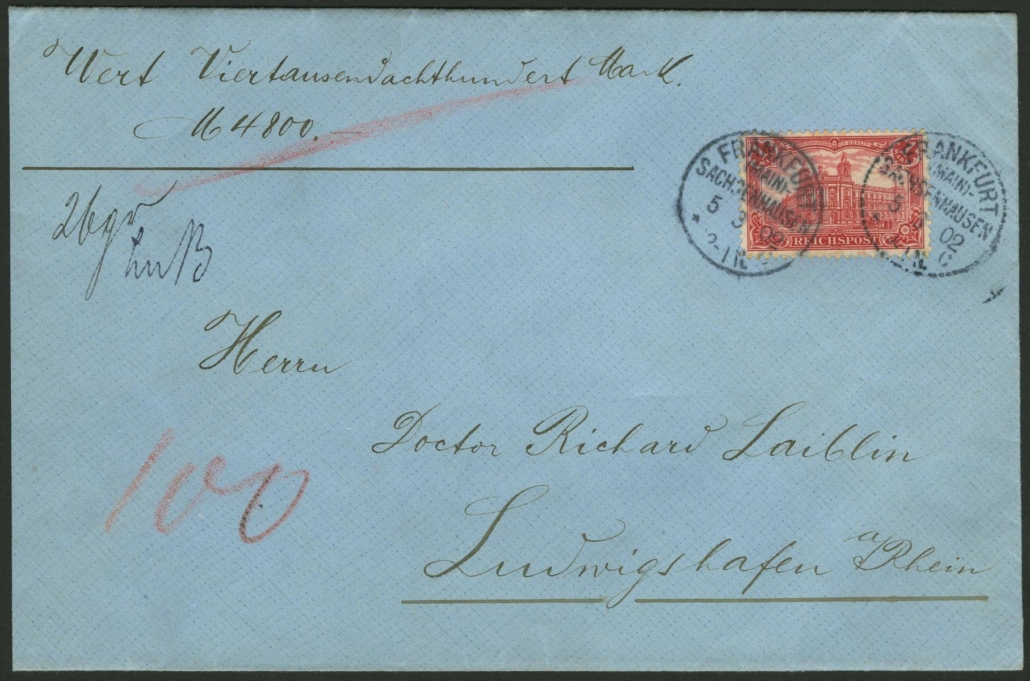 Wert Viertausendachthundert Mark.
M 4800.—
FRANKFURT
(MAIN)-
SACHSENHAUSEN
5 3 02
2-3 N.
REICHSPOST
FRANKFURT
(MAIN)-
SACHSENHAUSEN
5 3 02
N.
26gr
Herrn
100
Doctor Richard Laiblin
Ludwigshafen a/Rhein